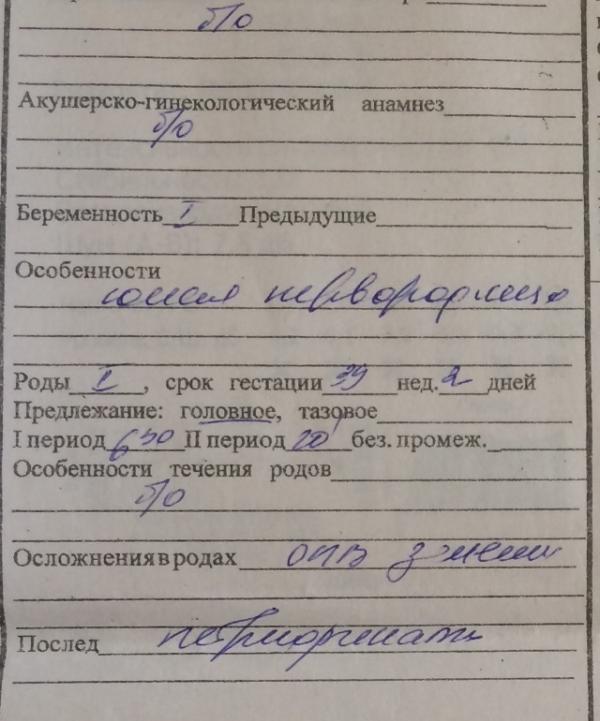 б/о
Акушерско-гинекологический анамнез
б/о
Беременность I Предыдущие
Особенности
юная первородящая
Роды I, срок гестации 39 нед. 2 дней
Предлежание: головное, тазовое
I период 6 30 II период 20' без. промеж.
Особенности течения родов
б/о
Осложнения в родах ОПВ
Послед